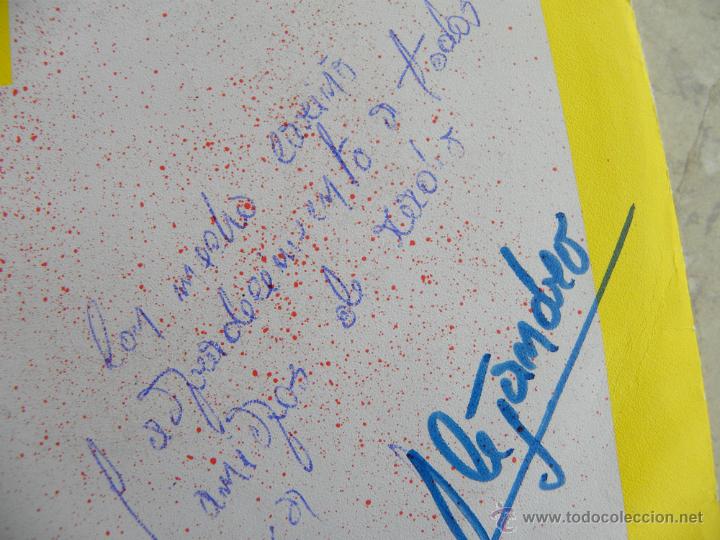 Con mucho cariño
y agradecimiento a todos
amigos de radio
Alejandro
© www.todocoleccion.net